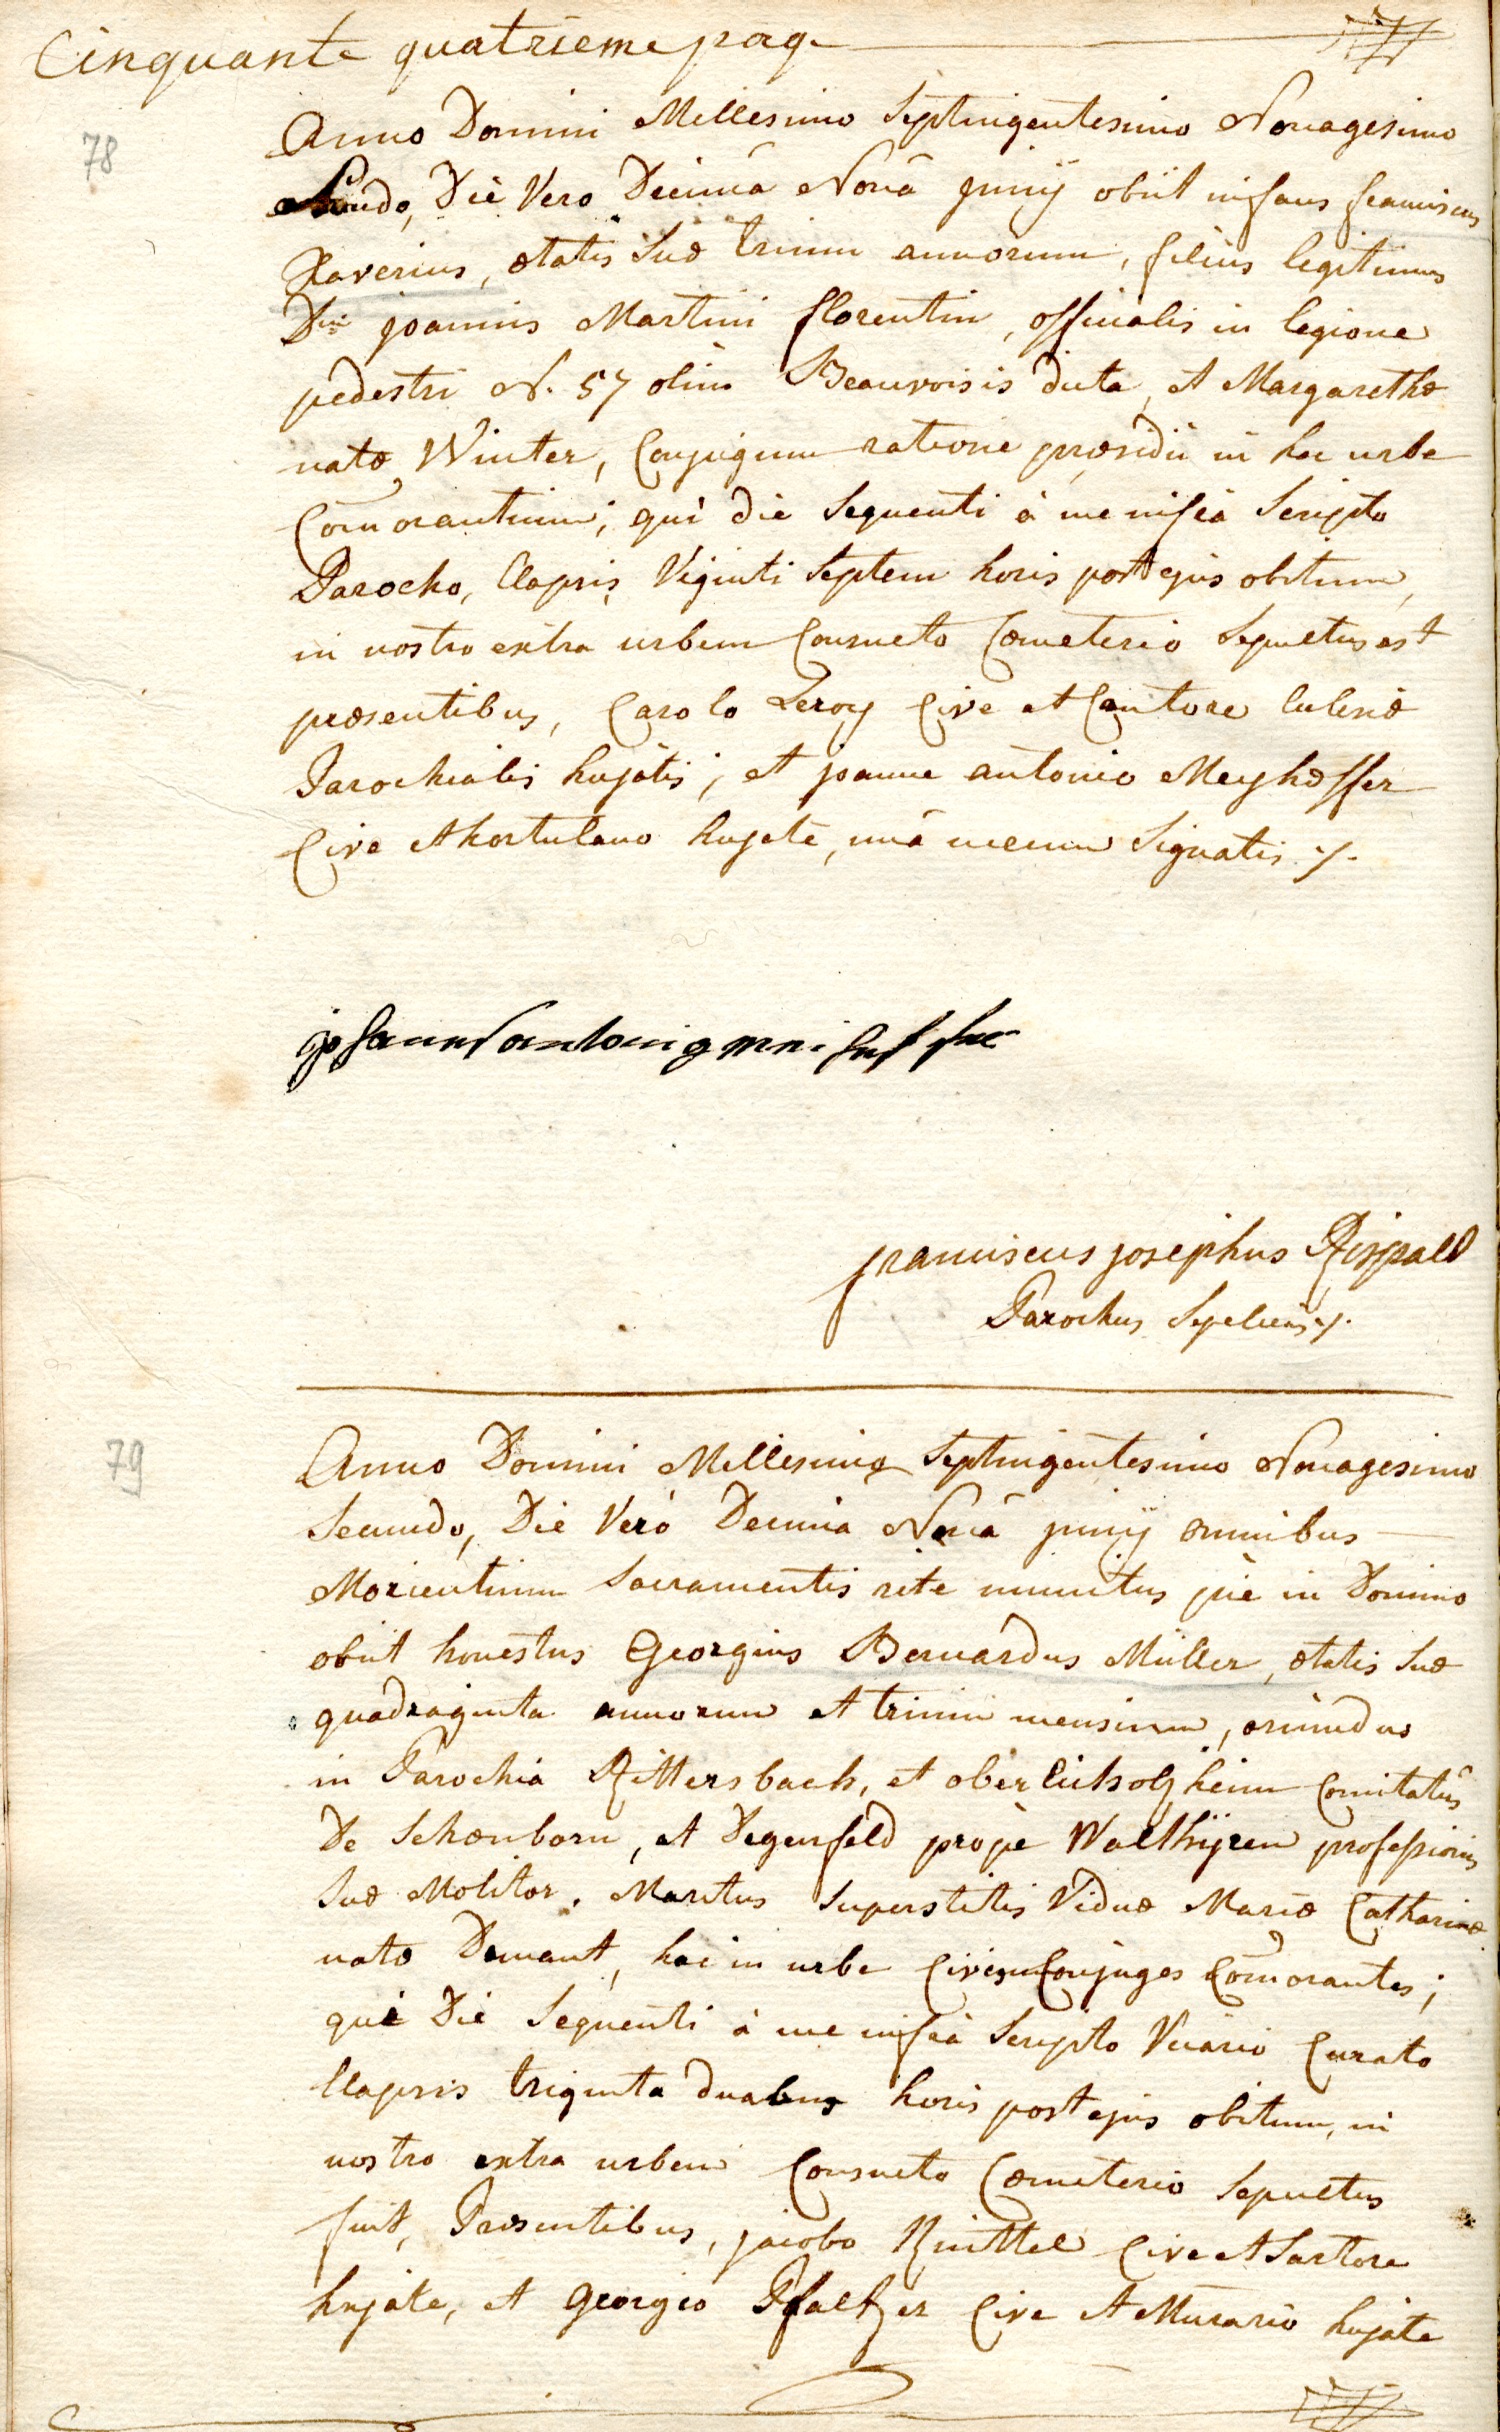 Cinquante quatrieme page
78
Anno Domini Millesimo Septingentesimo Nonagesimo
Secundo, Die Vero Decimâ Nonâ junÿ obiit infans franciscus
Xaverius, ætatis Suæ trium annorum, filius legitimus
Dni joannis Martini florentin, officialis in legione
pedestri N. 57 olim Beauvoisis dicta, et Margarethæ
natæ Winter, Conjugum ratione præsidii in hac urbe
Com̄orantium; qui die Sequenti à me infra Scripto
Parocho, Elapsis Viginti Septem horis post ejus obitum,
in nostro extra urbem Consueto Cœmeterio Sepultus est
præsentibus, Carolo Leroy Cive et Cantore Ecclesiæ
Parochialis hujatis; et joanne antonio Meyhoffer
Cive et hortulano hujate, unà mecum Signatis ./.
franciscus josephus
Parochus Sepeliens ./.
79
Anno Domini Millesimo Septingentesimo Nonagesimo
Secundo, Die Verò Decima Nonâ junÿ omnibus
Morientium Sacramentis rite munitus piè in Domino
obiit honestus Georgius Bernardus Müller, ætatis Suæ
quadraginta annorum et trium mensium, oriundus
in Parochia Rittersbach, et ober Eicholzheim Comitatûs
De Schœnborn, et Degenfeld propè Walthÿren professionis
Suæ Molitor. Maritus Superstitis Viduæ Mariæ Catharinæ
natæ Demant, hac in urbe Conjuges Com̄orantes;
qui Die Sequenti à me infrà Scripto Vicario Curato
Elapsis triginta duabus horis post ejus obitum, in
nostro extra urbem Consueto Cœmeterio Sepultus
fuit, Præsentibus, jacobo Knittel Cive et Sartore
hujate, et Georgio Pfaltzer Cive et Murario hujate